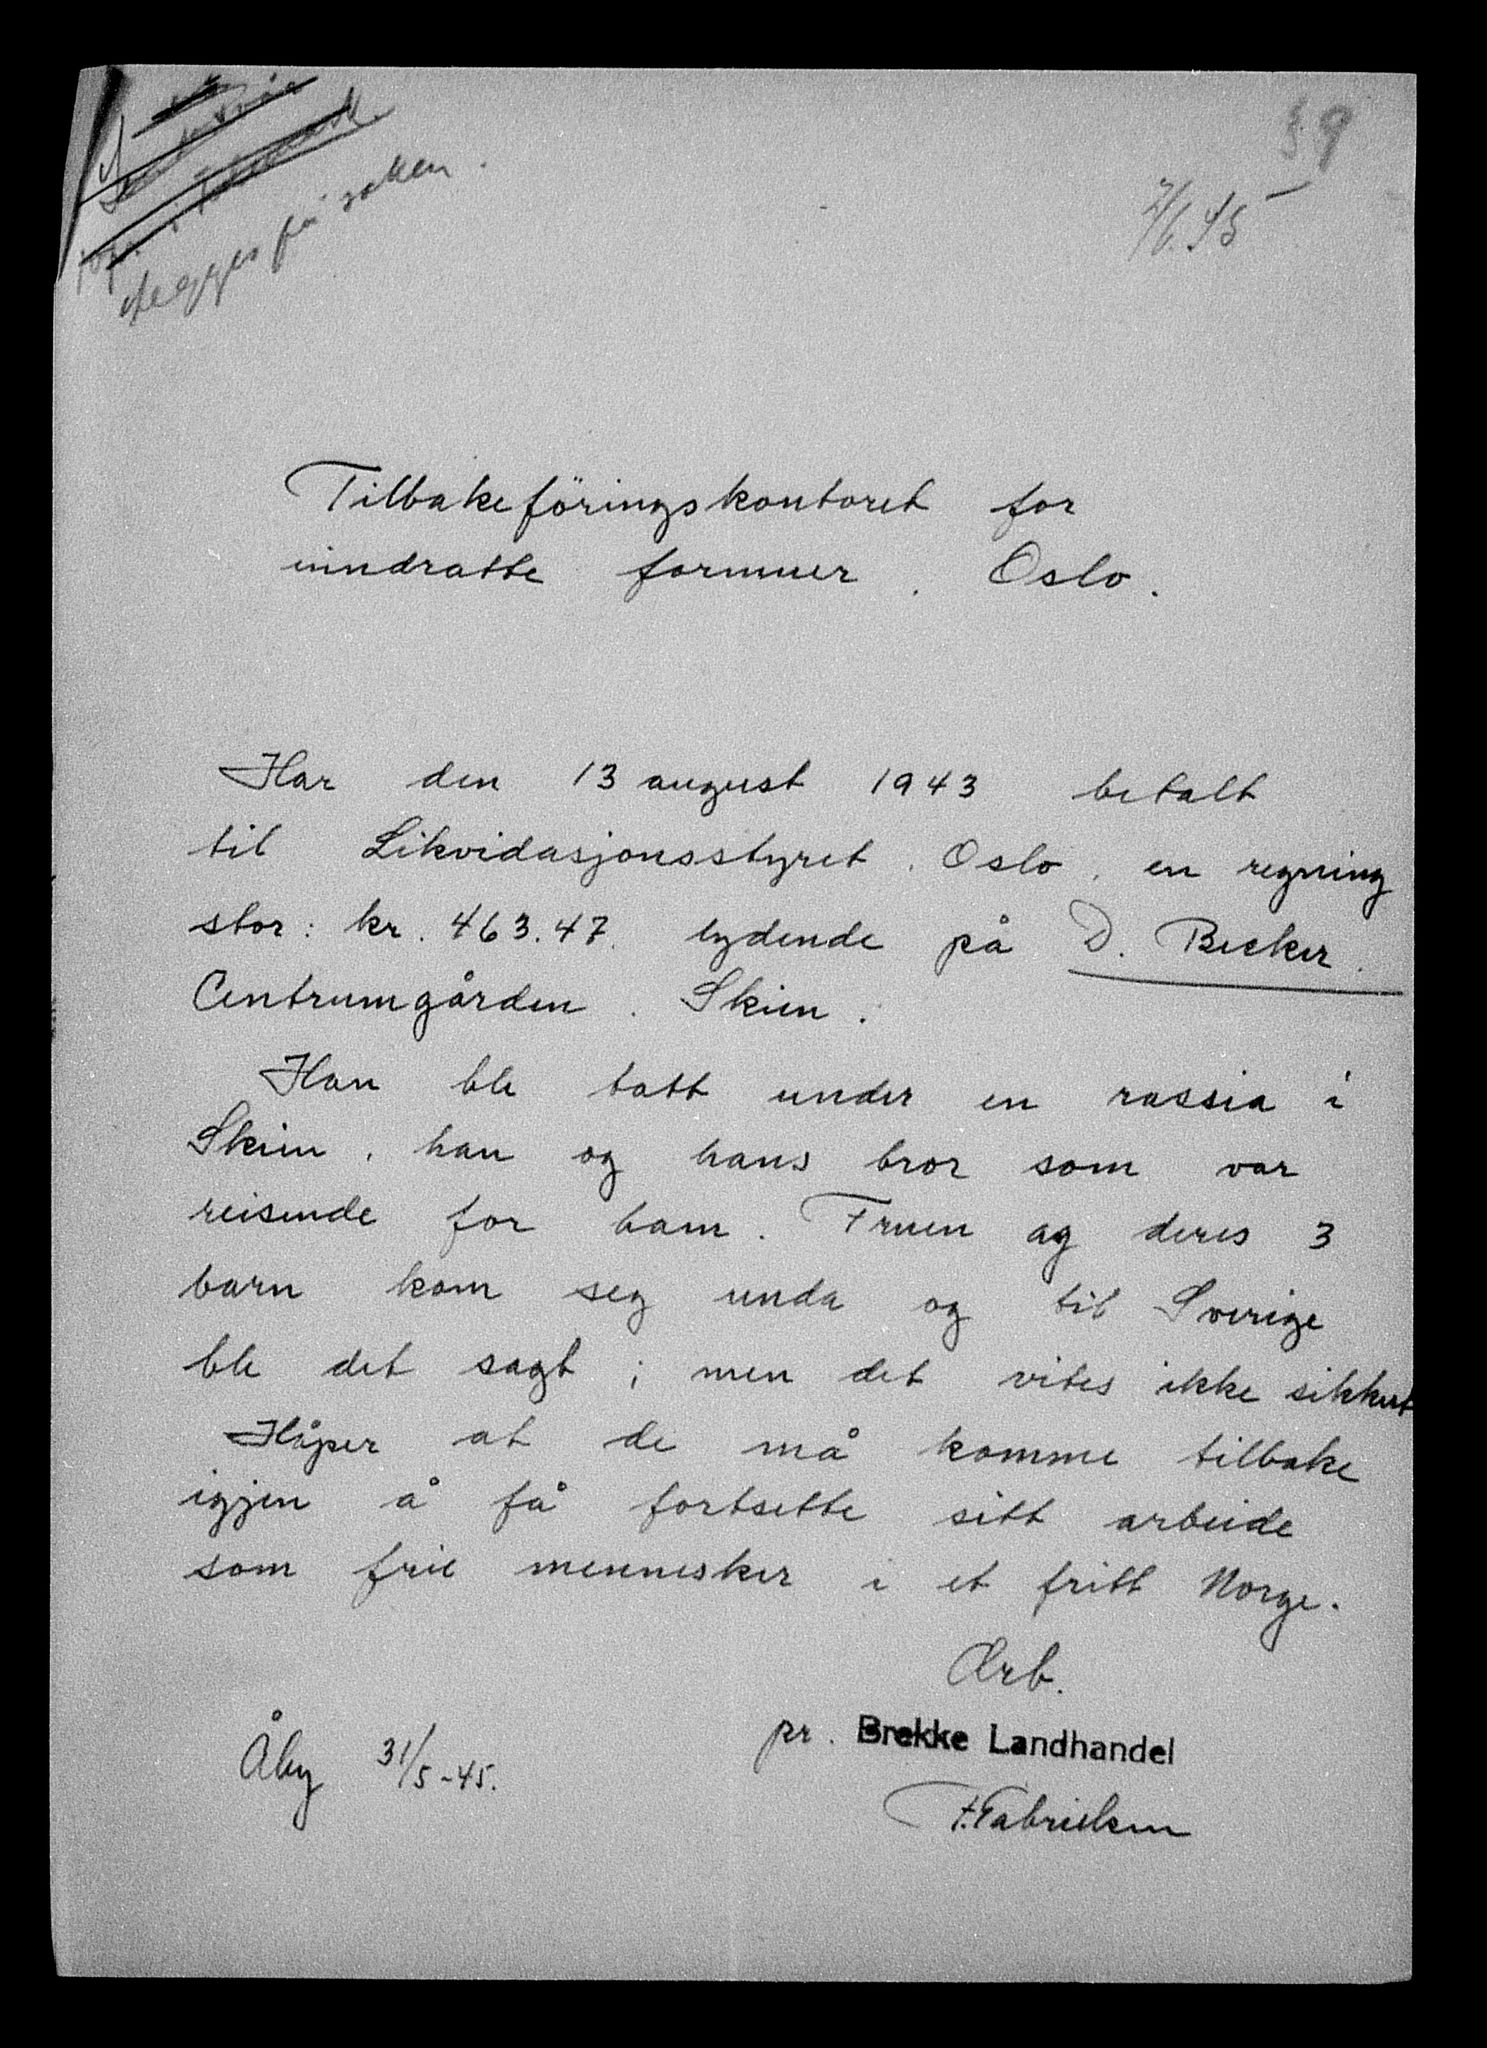 legges på saken.
59
2/6.45
Tilbakeföringskontoret for
inndratte formuer. Oslo.
Har den 13 august 1943 betalt
til Likvidasjonsstyret. Oslo. en regning
stor: kr. 463.47. lydende på D. Becker.
Centrumgården. Skien.
Han ble tatt under en rassia i
Skien. han og hans bror som var
reisende for ham. Fruen og deres 3
barn kom seg unda og til Sverige
ble det sagt; men det vites ikke sikkert
Håper at de må komme tilbake
igjen å få fortsette sitt arbeide
som frie mennesker i et fritt Norge.
Ærb.
pr. Brekke Landhandel
Åby 31/5-45.